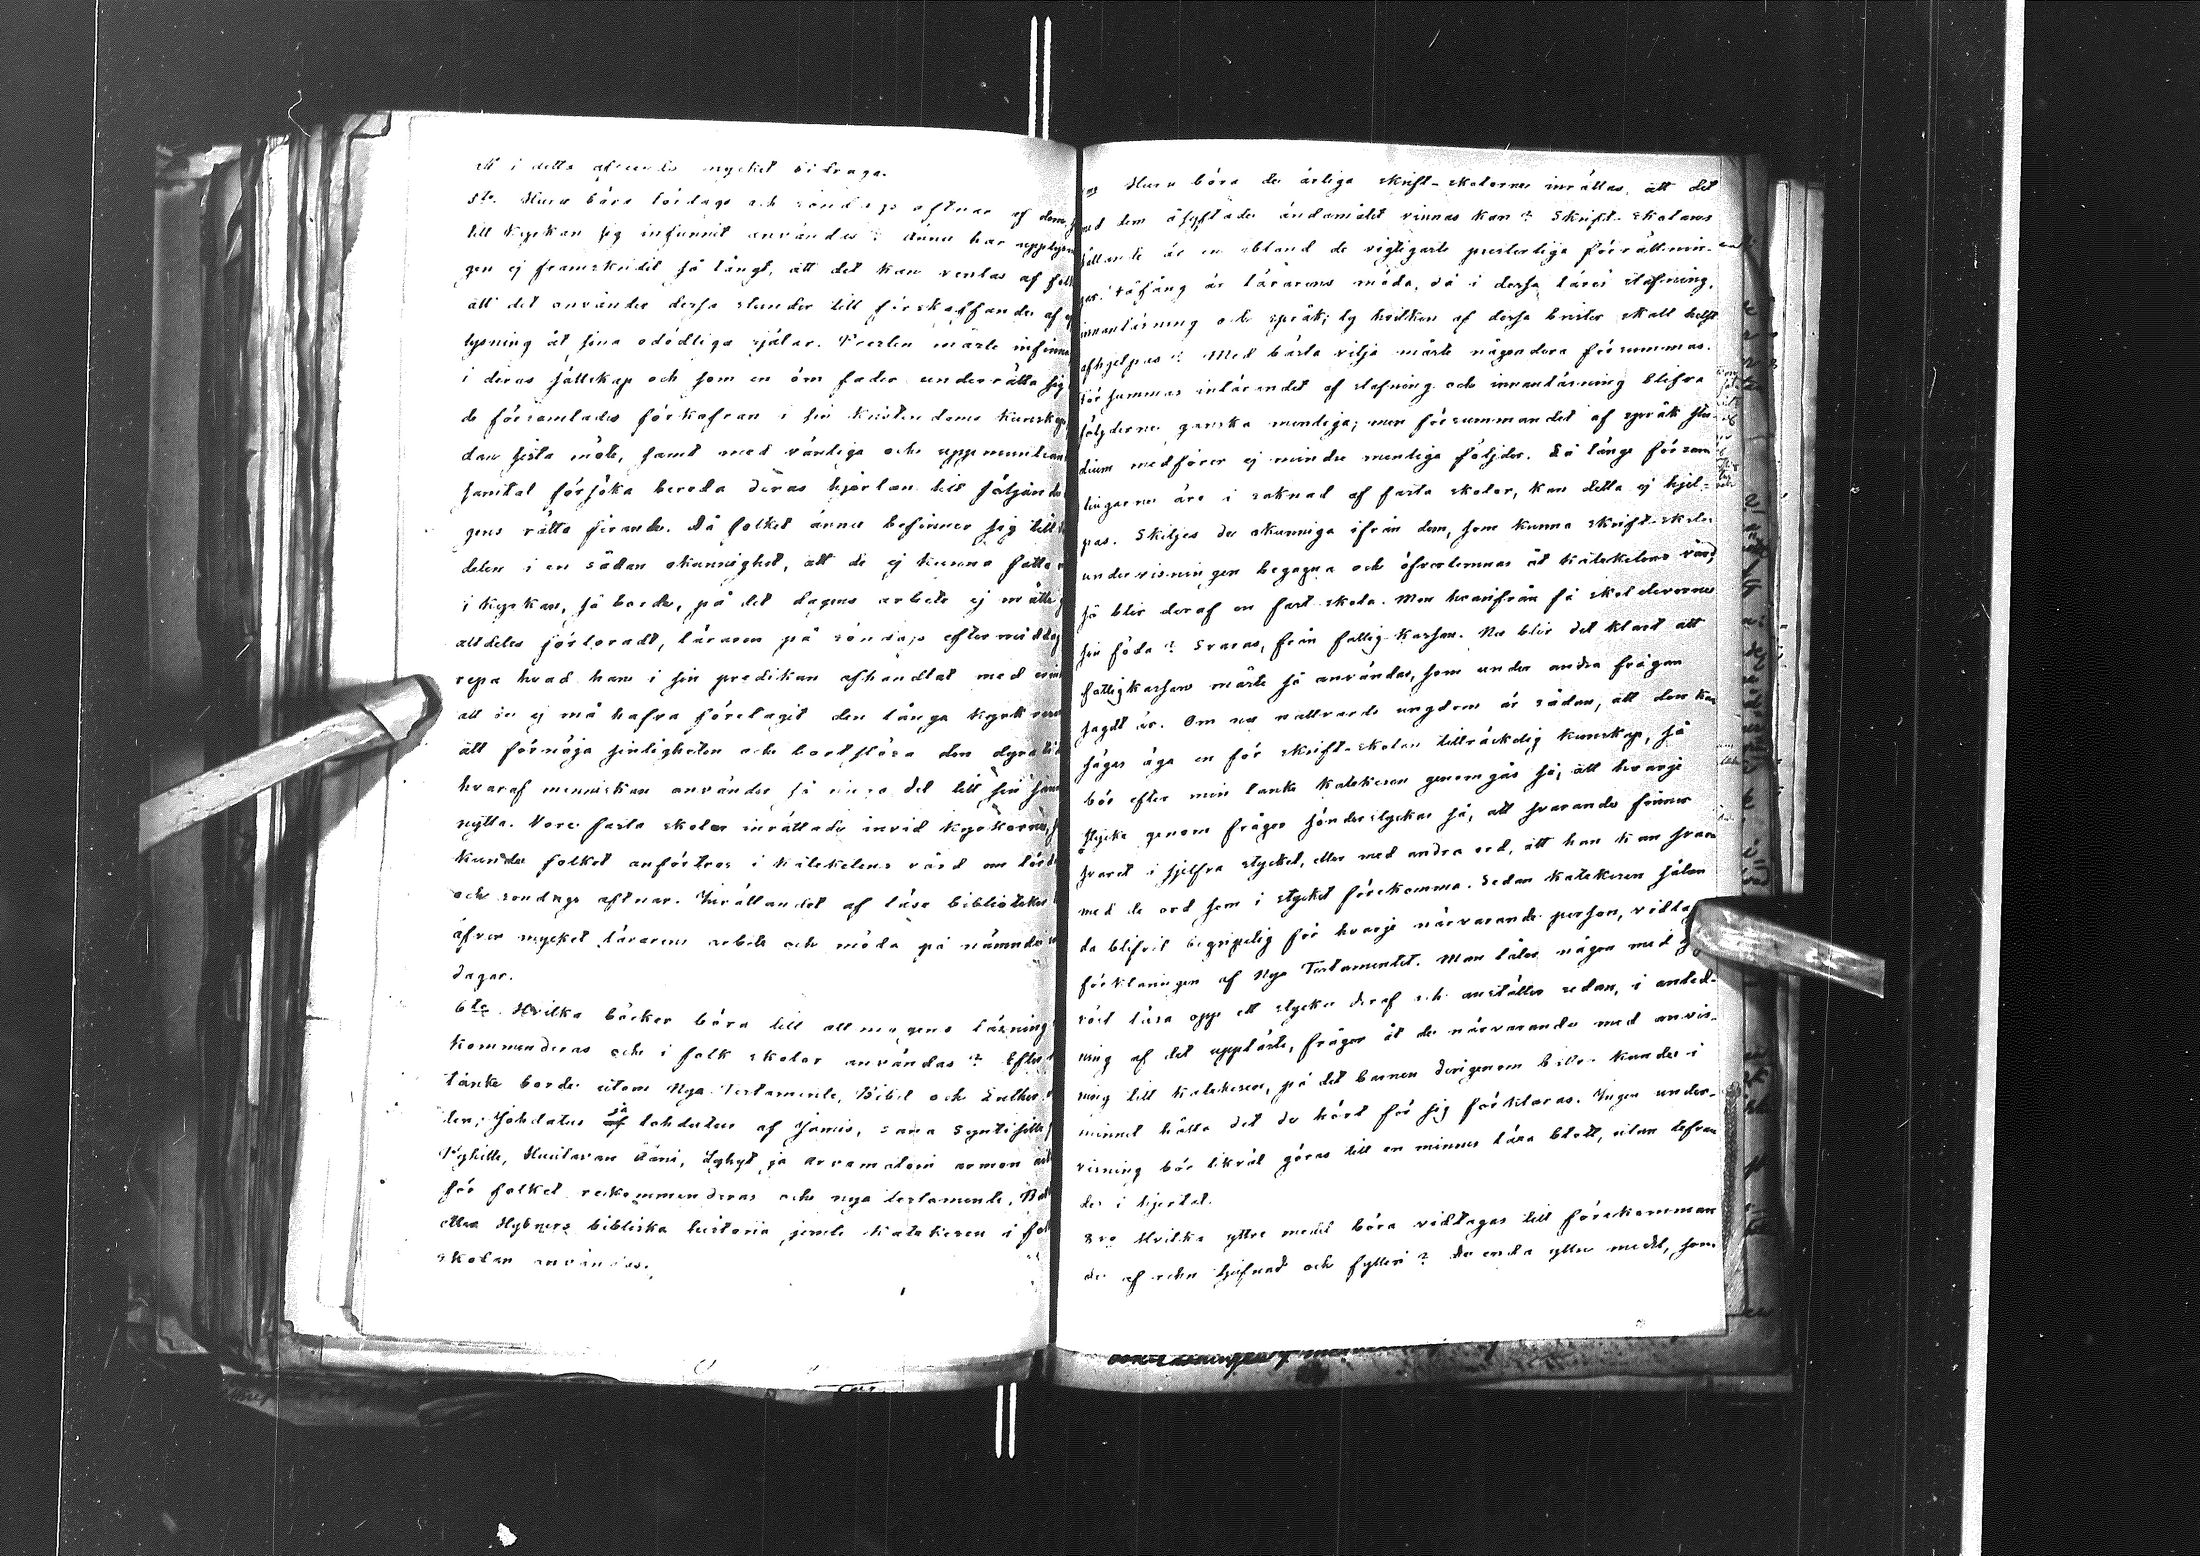 i detta afseende mycket bidraga.
5te. Huru böra lördags och söndags aftnar af dem,
till kyrkan sig infunnit användas? Ännu har upplysnin
gen ej framskridit så långt, att det kan ventas af fol
att det använder dessa stunder till förskaffandet af
lysning åt sina odödliga själar. Presten måste infinna
i deras sällskap och som en öm fader underrätta sig
de församlades förkofran i sin kristendoms kunskap,
dan sista möte, samt med vänliga och uppmuntran
samtal försöka bereda deras hjertan till följande
gens rätta firande. Då folket ännu befinner sig till
delen i en sådan okunnighet, att de ej kunna fatta
i kyrkan, så borde, på det dagens arbete ej måtte
alldeles förloradt, läraren på söndags eftermiddag
repa hvad han i sin predikan afhandlat med
att de ej må hafva företagit den långa kyrk
att förnöja sinligheten och bortslösa den dyra
hvaraf menniskan använder så ringa del till sin sann
nytta. Vore fasta skolor inrättade invid kyrkorna,
kunde folket anförtros i katekelens vård om lörd
och söndags aftnar. Inrättandet af läse biblioteker
äfven mycket lärarens arbete och möda på nämnde
dagar.
6te. Hvilka böcker böra till allmagens läsning
kommenderas och i folk skolor användas? Efter
tanke borde utom Nya Testamente, Bibel och Luther
len; Johdatus af Jämis, sana Syntisille
Pyhille, Huutavan Ääni, Lyhyt ja arvamatoin armon
för folket rekommenderas och nya testamente,
eller Hybners bibliska historia jemte katekesen i fol
skolan användas.
Huru böra de årliga skrift-skolorna inrättas, att det
med dem åsyftade ändamålet vinnas kan? Skrift-skolans
hållande är en ibland de vigtigaste presterliga förrättnin-
gar. Fåfäng är lärarens möda, då i dessa läres stafning,
innanläsning och språk; ty hvilken af dessa brister skall helst
afhjelpas? Med bästa vilja måste någondera försummas.
försummas inlärandet af stafning och innanläsning blifva
följderne ganska menliga; men försummandet af språk stu-
dium medförer ej mindre menliga följder. Så länge försam
lingarne äro i saknad af fasta skolor, kan detta ej hjel-
pas. Skiljes de okunniga ifrån dem, som kunna skrift-skole
undervisningen begagna och öfverlemnas åt katekelens vård,
så blir deraf en fast skola. Men hvarifrån få skoleleverne
sin föda? Svaras, från fattig-kassan. Nu blir det klart att
fattigkassan måste så användas, som under andra frågan
sagdt är. Om nu nattvards ungdom är sådan, att den kan
sägas äga en för skrift-skolan tillräckelig kunskap, så
bör efter min tanke katekesen genomgås så, att hvarje
stycke genom frågor sönderstyckas så, att svarande finner
svaret i sjelfva stycket, eller med andra ord, att han kan svara
med de ord som i stycket förekomma. Sedan katekesen sålun
da blifvit begripelig för hvarje närvarande person, vidtag
förklaringen af Nya Testamentet. Man låter någon med
röst läsa opp ett stycke deraf och anställer sedan, i anled-
ning af det upplästa, frågor åt de närvarande med anvis-
ning till katekesen, på det barnen derigenom blir kunde i
minnet hålla det de hört för sig förklaras. Ingen under-
visning bör likväl göras till en minnes lära blott, utan lefvan
de i hjertat.
8vo Hvilka yttre medel böra vidtagas till förekomman
de af tjufnad och fylleri? De enda yttre medel, som